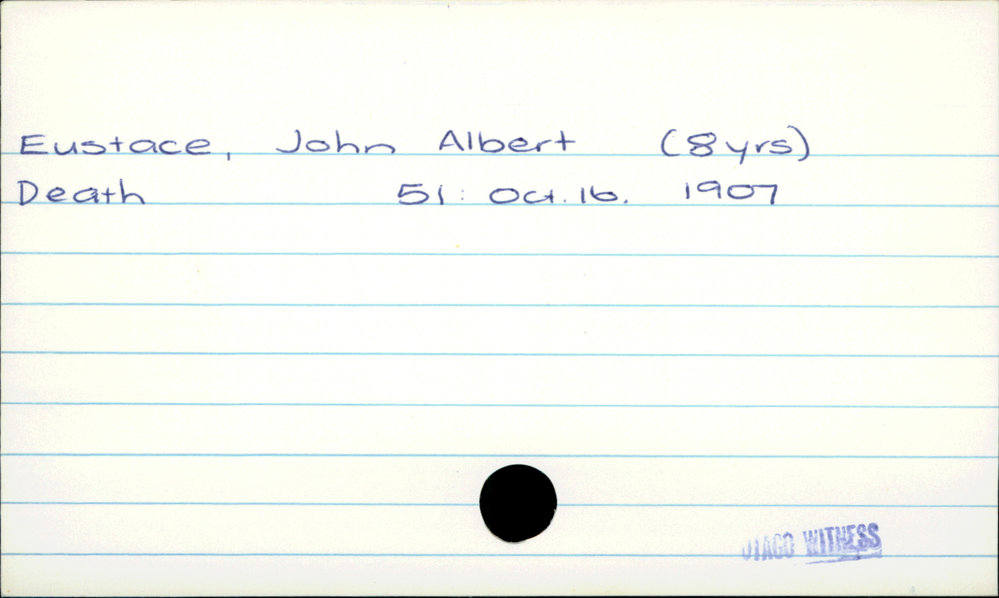 Eustace, John Albert (8 yrs)
Death 51: Oct. 16. 1907
OTAGO WITNESS